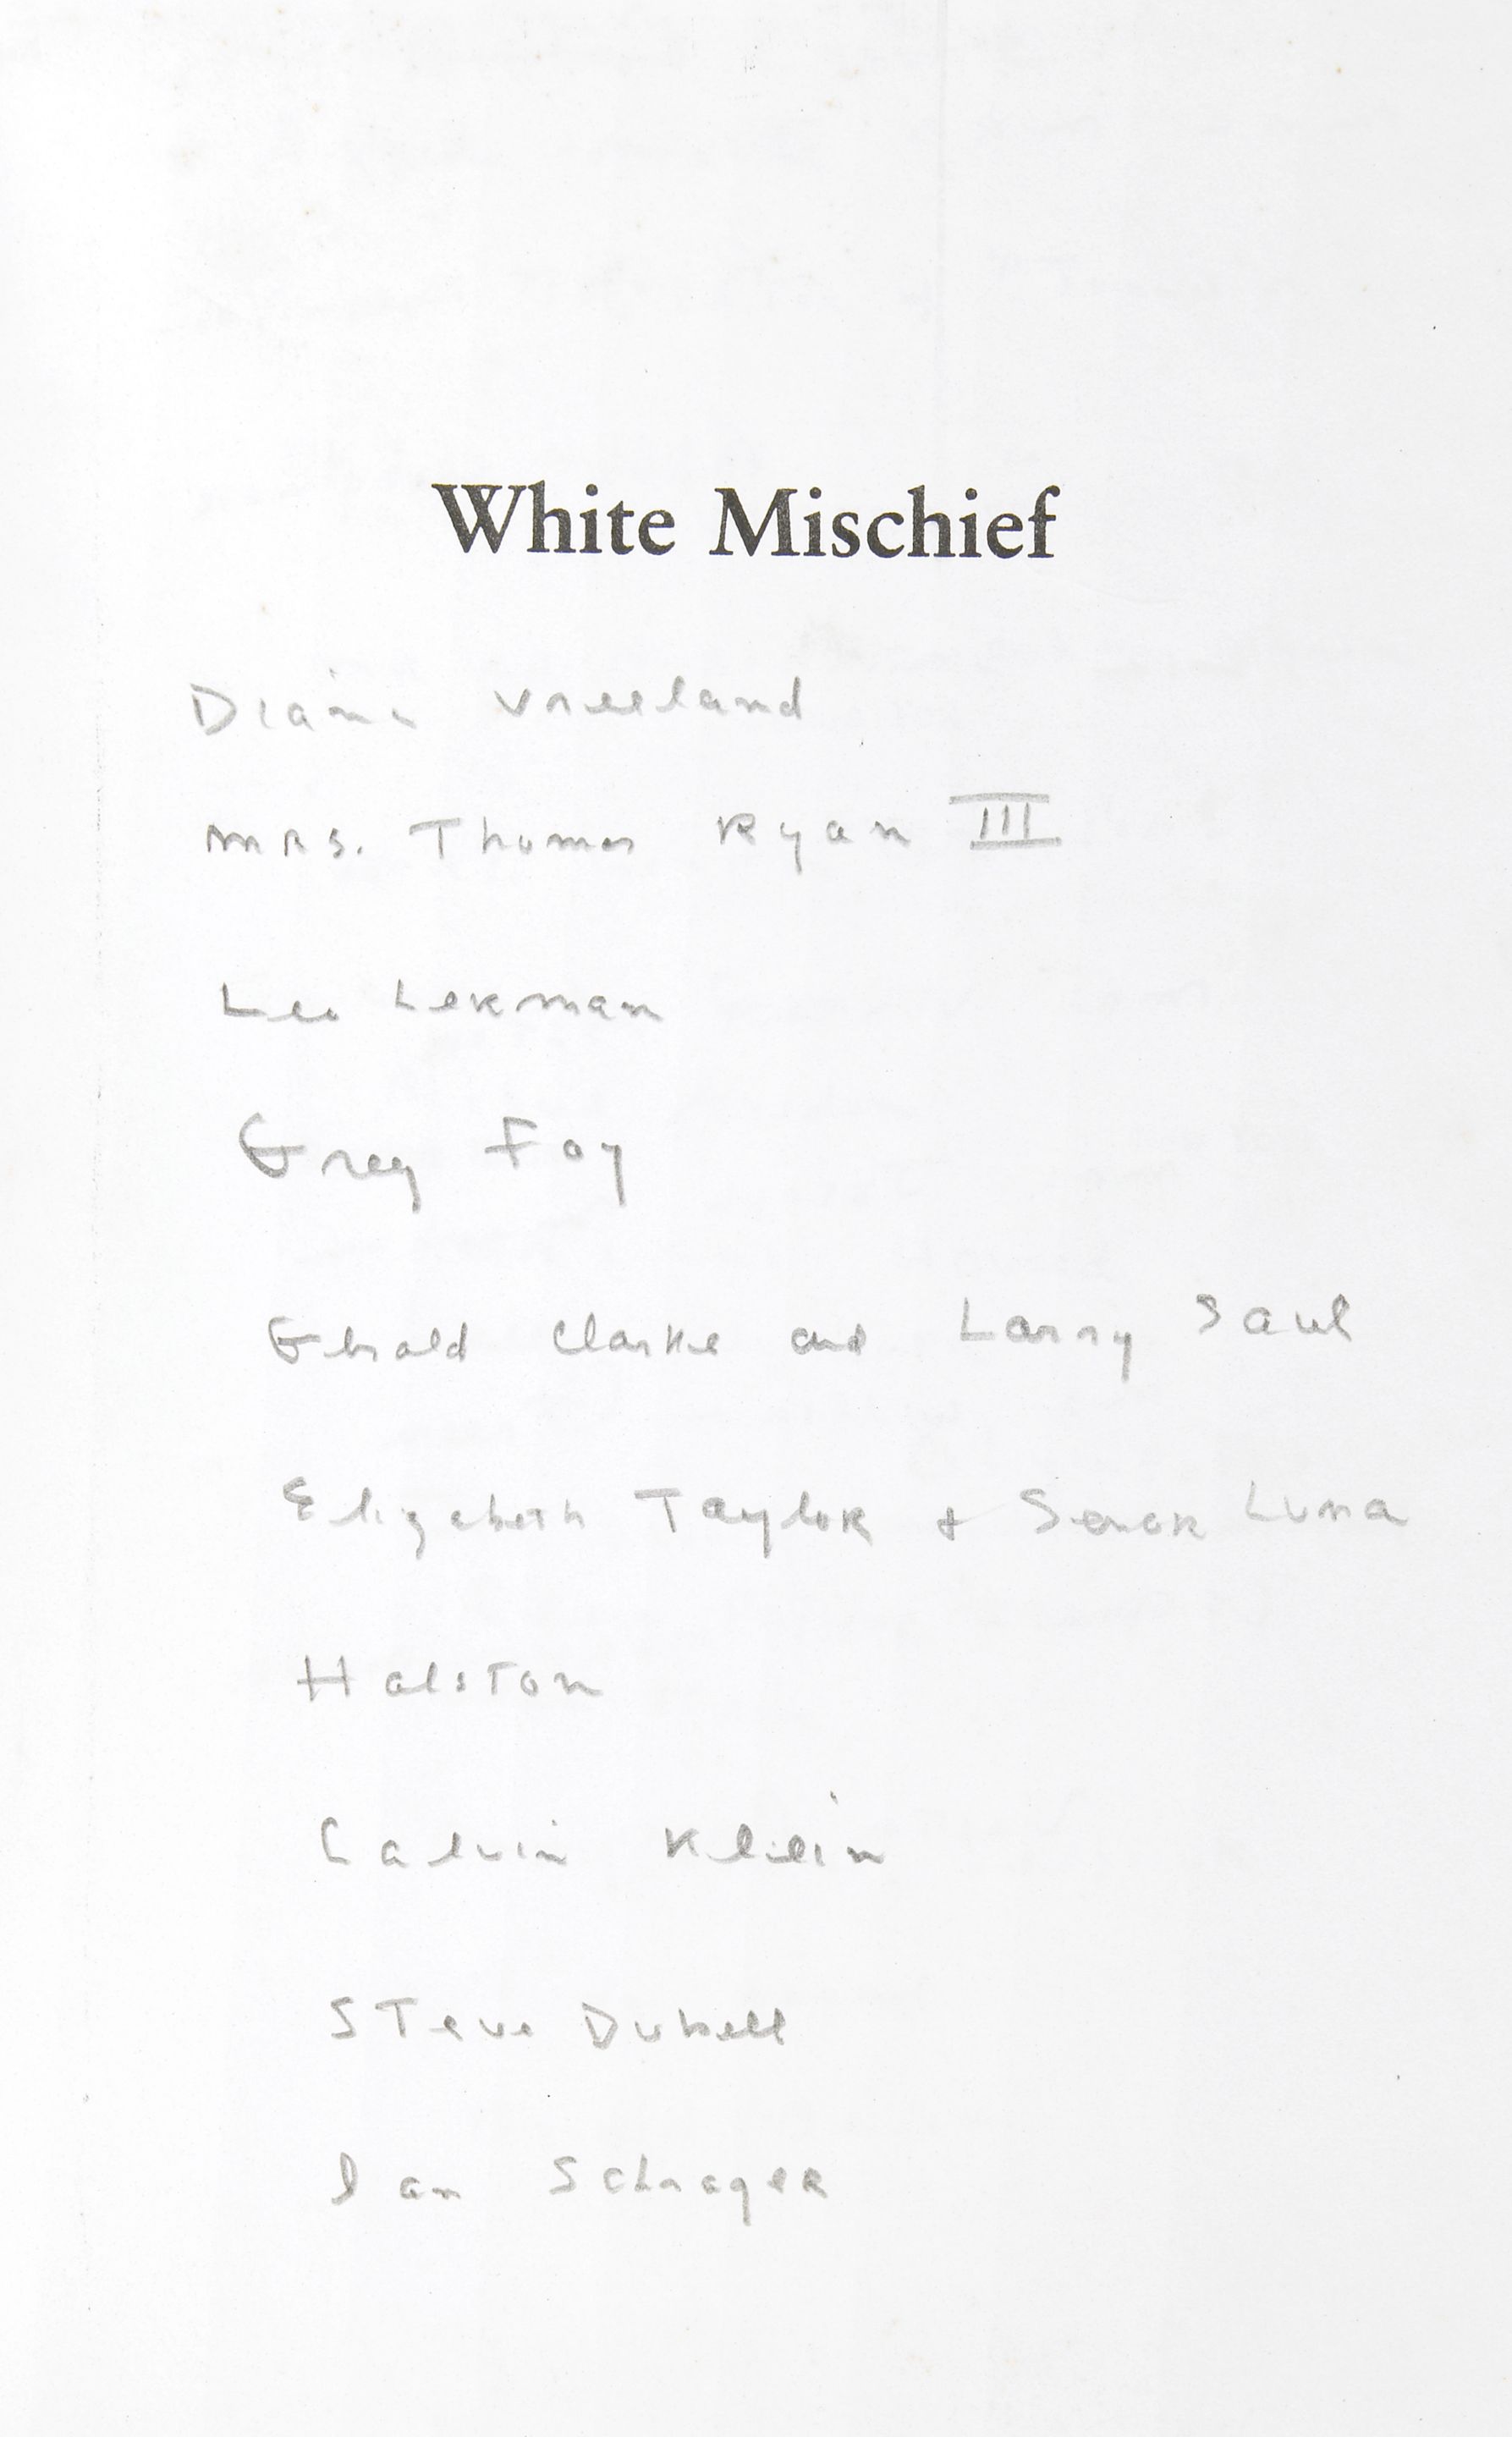 White Mischief
Diana Vreeland
MRS. Thomas Ryan III
Leo Lerman
Grey Foy
Gerald Clarke and Larry Saul
Elizabeth Taylor + Senor Luna
Halston
Calvin Klein
Steve Rubell
Ian Schrager